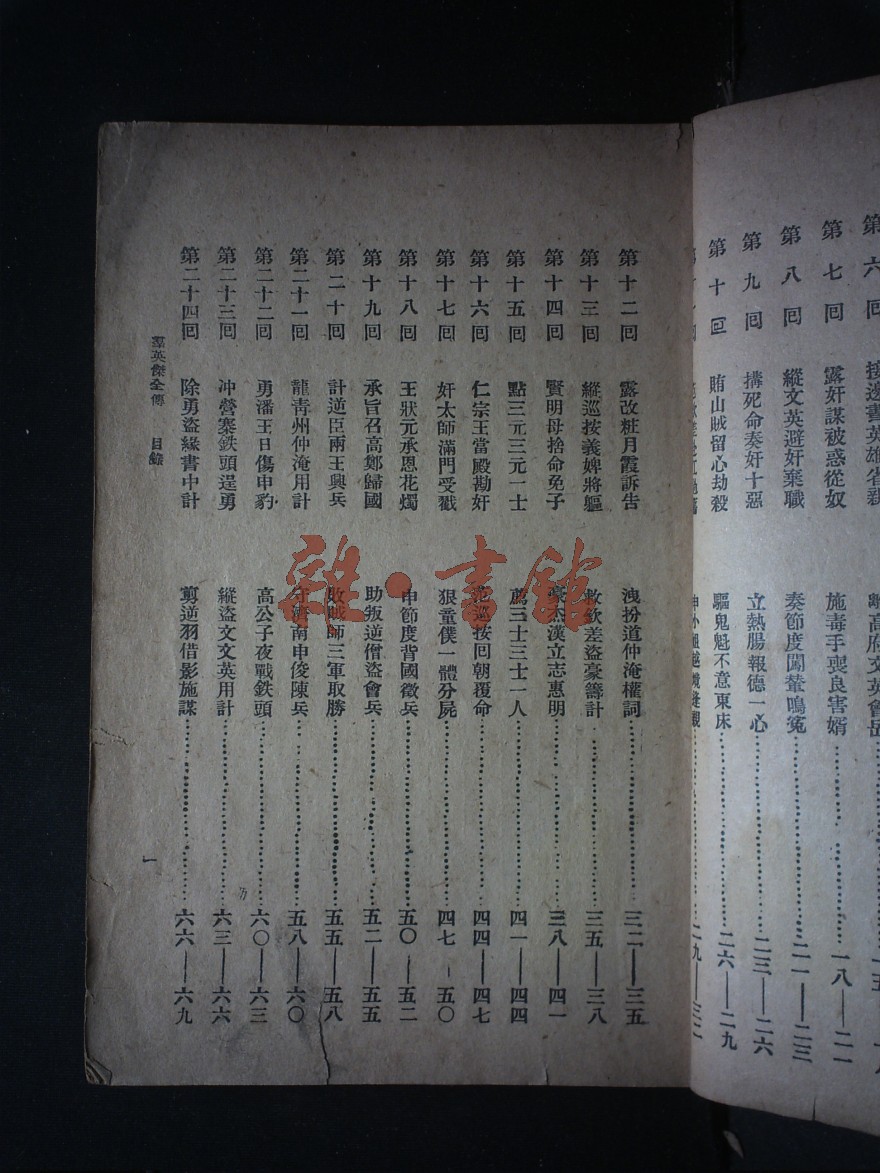 第六回 接邊書英雄省親 高府文英會岳
第七回 露奸謀被惑從奴 施毒手喪良害婿 一八——二一
第八回 縱文英避奸棄職 奏節度闖螯鳴冤 二一——二三
第九回 搆死命奏奸十惡 立熱腸報德一心 二三——二六
第十回 賄山賊留心劫殺 驅鬼魁不意東床 二六——二九
二九——三二
第十二回 露改粧月霞訴告 洩扮道仲淹權詞 三二——三五
第十三回 縱巡按義婢將軀 救欽差盜豪籌計 三五——三八
第十四回 賢明母捨命免子 豪杰漢立志惠明 三八——四一
第十五回 點三元三元一士 薦三士三士一人 四一——四四
第十六回 仁宗王當殿勘奸 范巡按回朝覆命 四四——四七
第十七回 奸太師滿門受戳 狠童僕一體分屍 四七—五〇
第十八回 王狀元承恩花燭 申節度背國徵兵 五〇——五二
第十九回 承旨召高鄭歸國 助叛逆僧盜會兵 五二——五五
第二十回 計逆臣兩王興兵 敗賊師三軍取勝 五五——五八
第二十一回 龍青州仲淹用計 守濟南申俊陳兵 五八——六〇
第二十二回 勇潘王日傷申豹 高公子夜戰鉄頭 六〇——六三
第二十三回 冲營寨鉄頭逞勇 縱盜文文英用計 六三——六六
第二十四回 除勇盜緣書中計 剪逆羽借影施謀 六六——六九
羣英傑全傳 目錄
一
雜·書館